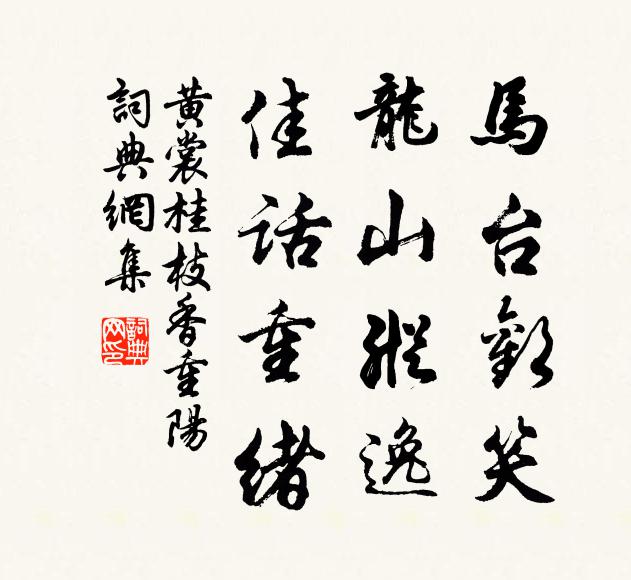 馬台歡笑
龍山縱逸
佳話重緒
黃裳桂枝香重陽
詞典網集
詞典
网印